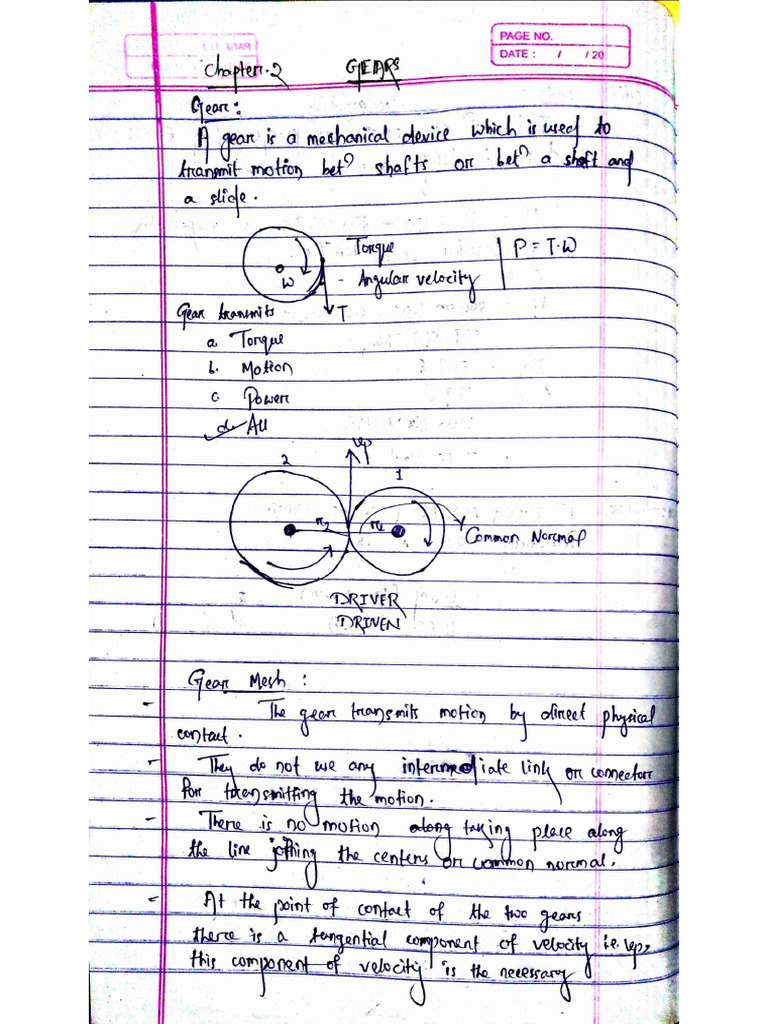 PAGE NO.
DATE : / / 20
Chapter.2 GEARS
Gear:
A gear is a mechanical device which is used to
transmit motion betⁿ shafts or betⁿ a shaft and
a slide.
Torque
- Angular velocity
P = T.W
W
T
Gear transmits
a. Torque
b. Motion
c. Power
d. All
Vp
2
1
r2
r1
Common Normal
DRIVER
DRIVEN
Gear Mesh :
- The gear transmits motion by direct physical
contact.
- They do not use any intermediate link or connector
for transmitting the motion.
- There is no motion along taking place along
the line joining the centers or common normal.
- At the point of contact of the two gears
there is a tangential component of velocity i.e. Vp,
this component of velocity is the necessary